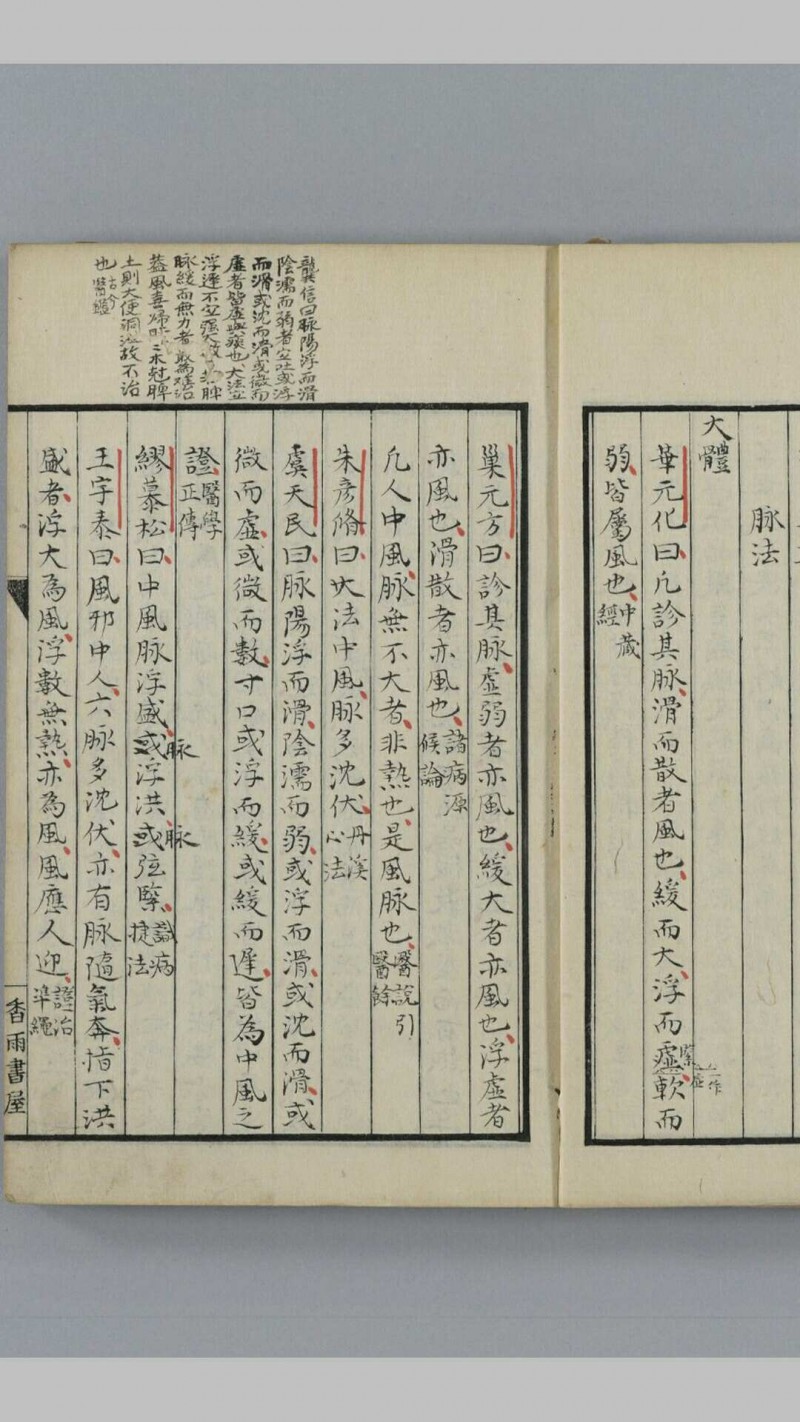 脉法
大體
華元化曰凡診其脉滑而散者風也緩而大浮而虛軟而
一作緊
弱皆屬風也中藏經
龔信曰脉陽浮而滑
陰濡而弱者宜吐或浮
而滑或沈而滑或微而
虛者皆虛與痰也大法宜
浮遲不宜
脉緩而無力者最為難治
蓋風喜傷肝木尅脾
土則大便洞泄故不治
也古今醫鑑
巢元方曰診其脉虛弱者亦風也緩大者亦風也浮虛者
亦風也滑散者亦風也諸病源候論
凡人中風脉無不大者非熱也是風脉也醫說引醫餘
朱彦脩曰大法中風脉多沈伏丹溪心法
虞天民曰脉陽浮而滑陰濡而弱或浮而滑或沈而滑或
微而虛或微而數寸口或浮而緩或緩而遲皆為中風之
證醫學正傳
繆慕松曰中風脉浮盛脉或浮洪脉或弦緊識病捷法
王宇泰曰風邪中人六脉多沈伏亦有脉隨氣奔指下洪
盛者浮大為風浮數無熱亦為風風應人迎證治準繩
香雨書屋